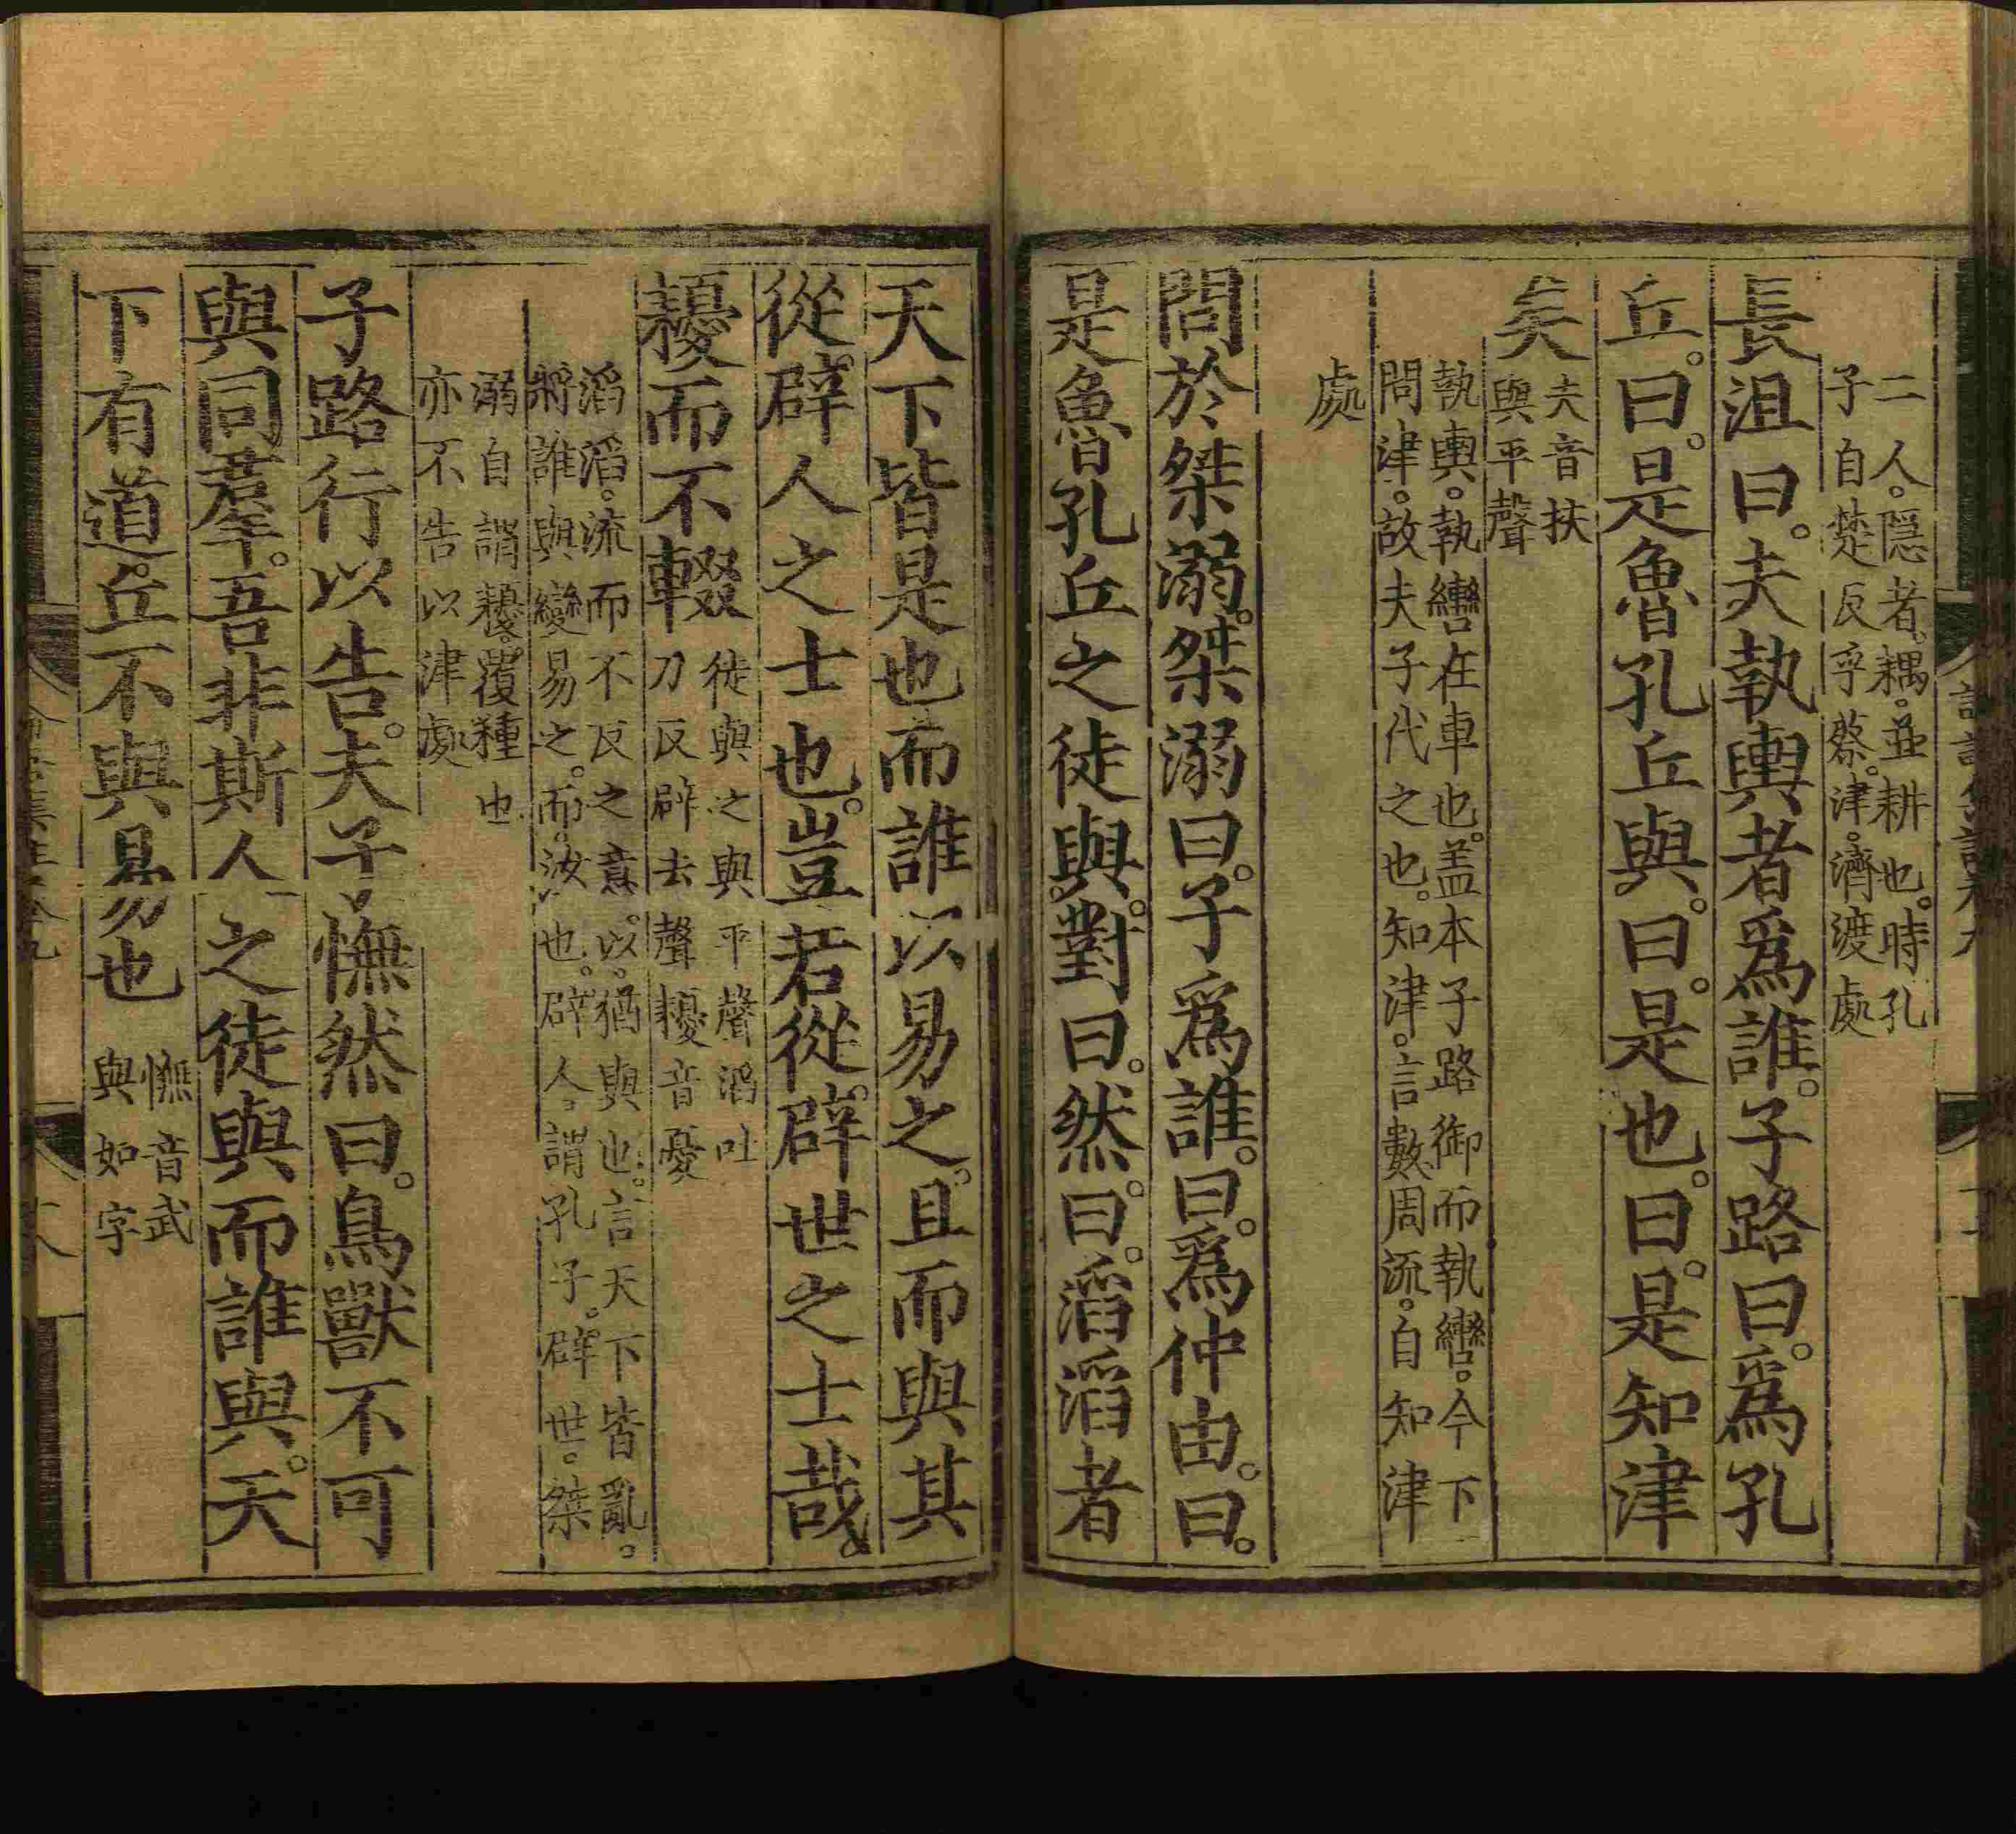 二人。隱者。耦。並耕也。時孔
子自楚反乎蔡。津。濟渡處
長沮曰。夫執輿者爲誰。子路曰。爲孔
丘。曰。是魯孔丘與。曰。是也。曰。是知津
矣
夫音扶
與平聲
執輿。執轡在車也。盖本子路御而執轡。今下
問津。故夫子代之也。知津。言數周流。自知津
處
問於桀溺。桀溺曰。子爲誰。曰。爲仲由。曰。
是魯孔丘之徒與。對曰。然。曰。滔滔者
天下皆是也而誰以易之。且而與其
從辟人之士也。豈若從辟世之士哉。
耰而不輟
徒與之與平聲滔吐
刀反辟去聲耰音憂
滔滔。流而不反之意。以。猶與也。言天下皆亂。
將誰與變易之。而。汝也。辟人。謂孔子。辟世。桀
溺自謂。耰。覆種也
亦不告以津處
子路行以告。夫子憮然曰。鳥獸不可
與同羣。吾非斯人之徒與而誰與。天
下有道。丘不與易也
憮音武
與如字